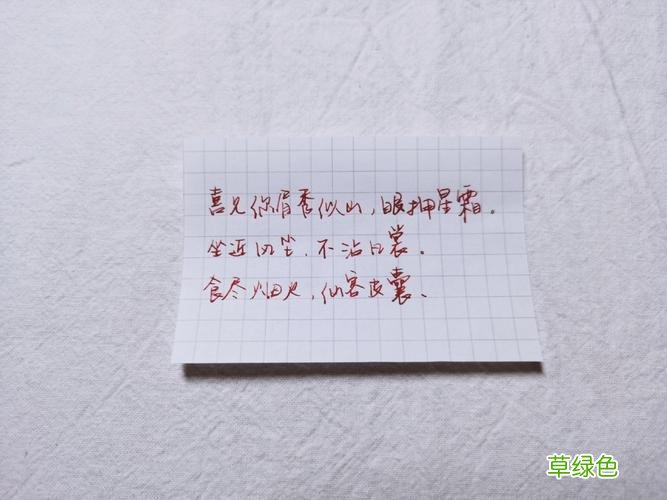 喜见你眉秀似山，眼押星霜。
坐近风尘，不沾白裳。
食尽烟火，仙客皮囊、
草绿色